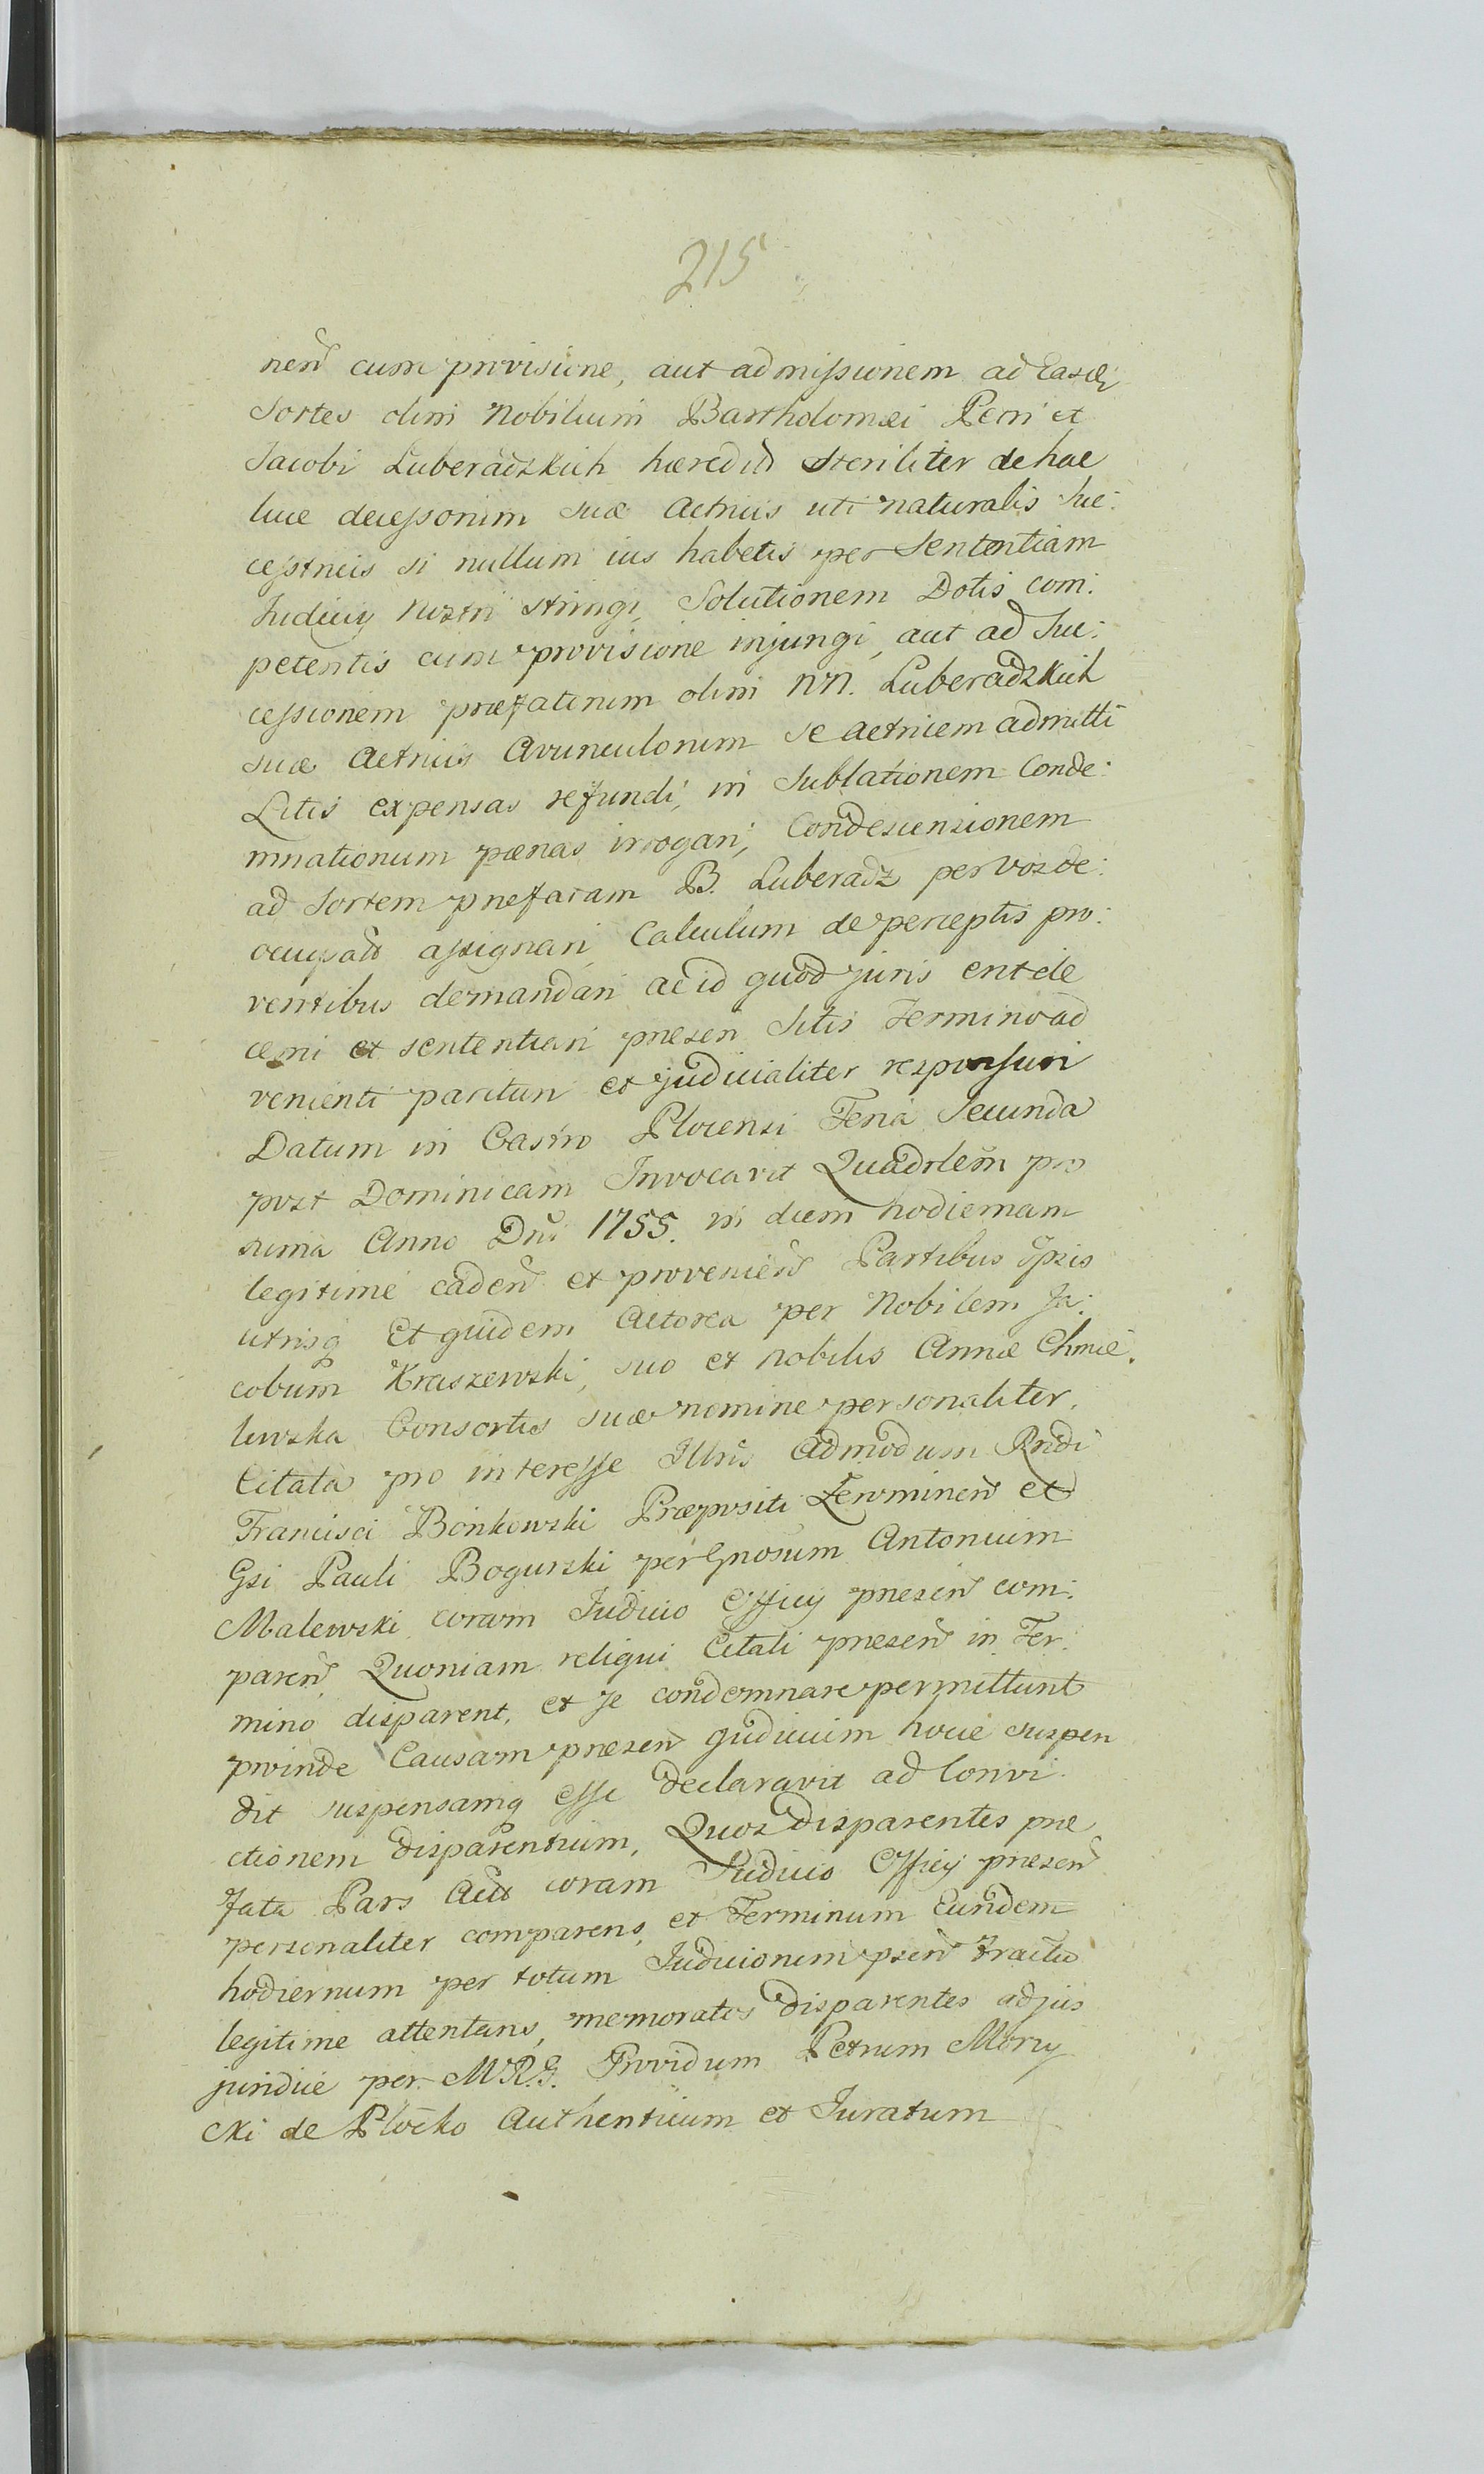 215
neñ cum provisione, aut admissionem ad Easdẽ
Sortes olim Nobilium Bartholomæi Petri et
Jacobi Luberadzkich hæredũ steriliter de hac
luce decessorum suæ Actricis uti naturalis Suc:
cestricis si nullum ius habetis per Sententiam
Iudicij nostri stringi, Solutionem Dotis com:
petentis cum provisione injungi, aut ad Suc:
cessionem præfatorum olim NN. Luberadzkich
suæ Actricis Avunculorum se actricem admitti
Litis expensas refundi, in Sublationem Conde:
mnationum pænas irrogari, Condescensionem
ad Sortem præfatam B. Luberadz per vos de:
occupatã assignari, Calculum de perceptis pro:
ventibus demandari ac id quod juris erit de
cerni et sententiari præsen Sitis Termino ad
venienti parituri et judicialiter responsuri
Datum in Castro Plocensi Feria Secunda
post Dominicam Invocavit Quadrlem pro
xima Anno Dni 1755. in diem hodiernam
legitime cadeñ et provenieñ Partibus Ipsis
utrisq Et quidem Actorea per Nobilem Ja:
cobum Kraszewski, suo et nobilis Annæ Chmie.
lewska Consortis suæ nomine personaliter.
Citata pro interesse Illris Admodum Rndi
Francisci Bońkowski Præpositi Zeromineñ et
Gsi Pauli Bogurski per Gnosum Antonium
Malewski coram Iudicio Officij præseñ com:
pareñ Quoniam reliqui Citati præseñ in Ter:
mino disparent, et se condemnare permittunt
proinde Causam præseñ Judicium hocce suspen
dit suspensamq esse declaravit ad Convi
ctionem disparentium, Quos disparentes præ
fata Pars Act coram Iudicio Officij præseñ
personaliter comparens, et Terminum Eundem
hodiernum per totum Iudiciorum pseñ tractũ
legitime attentans, memoratos disparentes adjus
juridice per M.R.G. Providum Petrum Mory
cki de Płocko Authenticum et Juratum